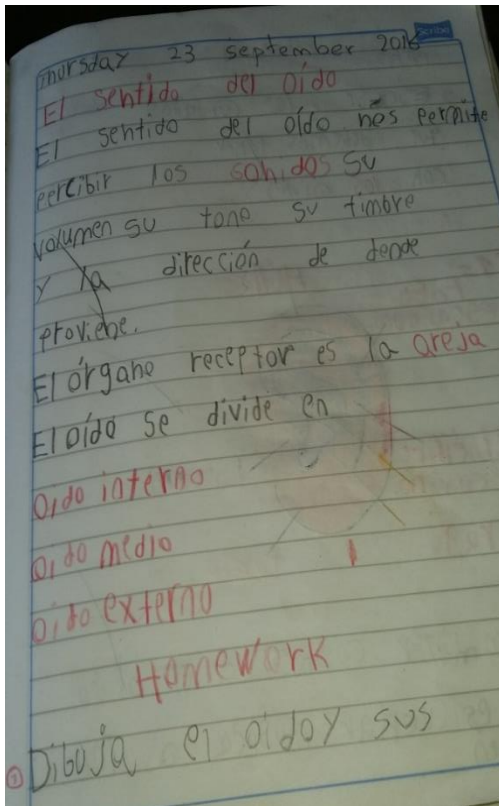 Thursday 23 september 2016
El sentido del oído
El sentido del oído nos permite
percibir los sonidos su
volumen su tono su timbre
y la dirección de donde
proviene.
El órgano receptor es la oreja
El oído se divide en
Oido interno
Oido medio
Oido externo
Homework
Dibuja el oido y sus